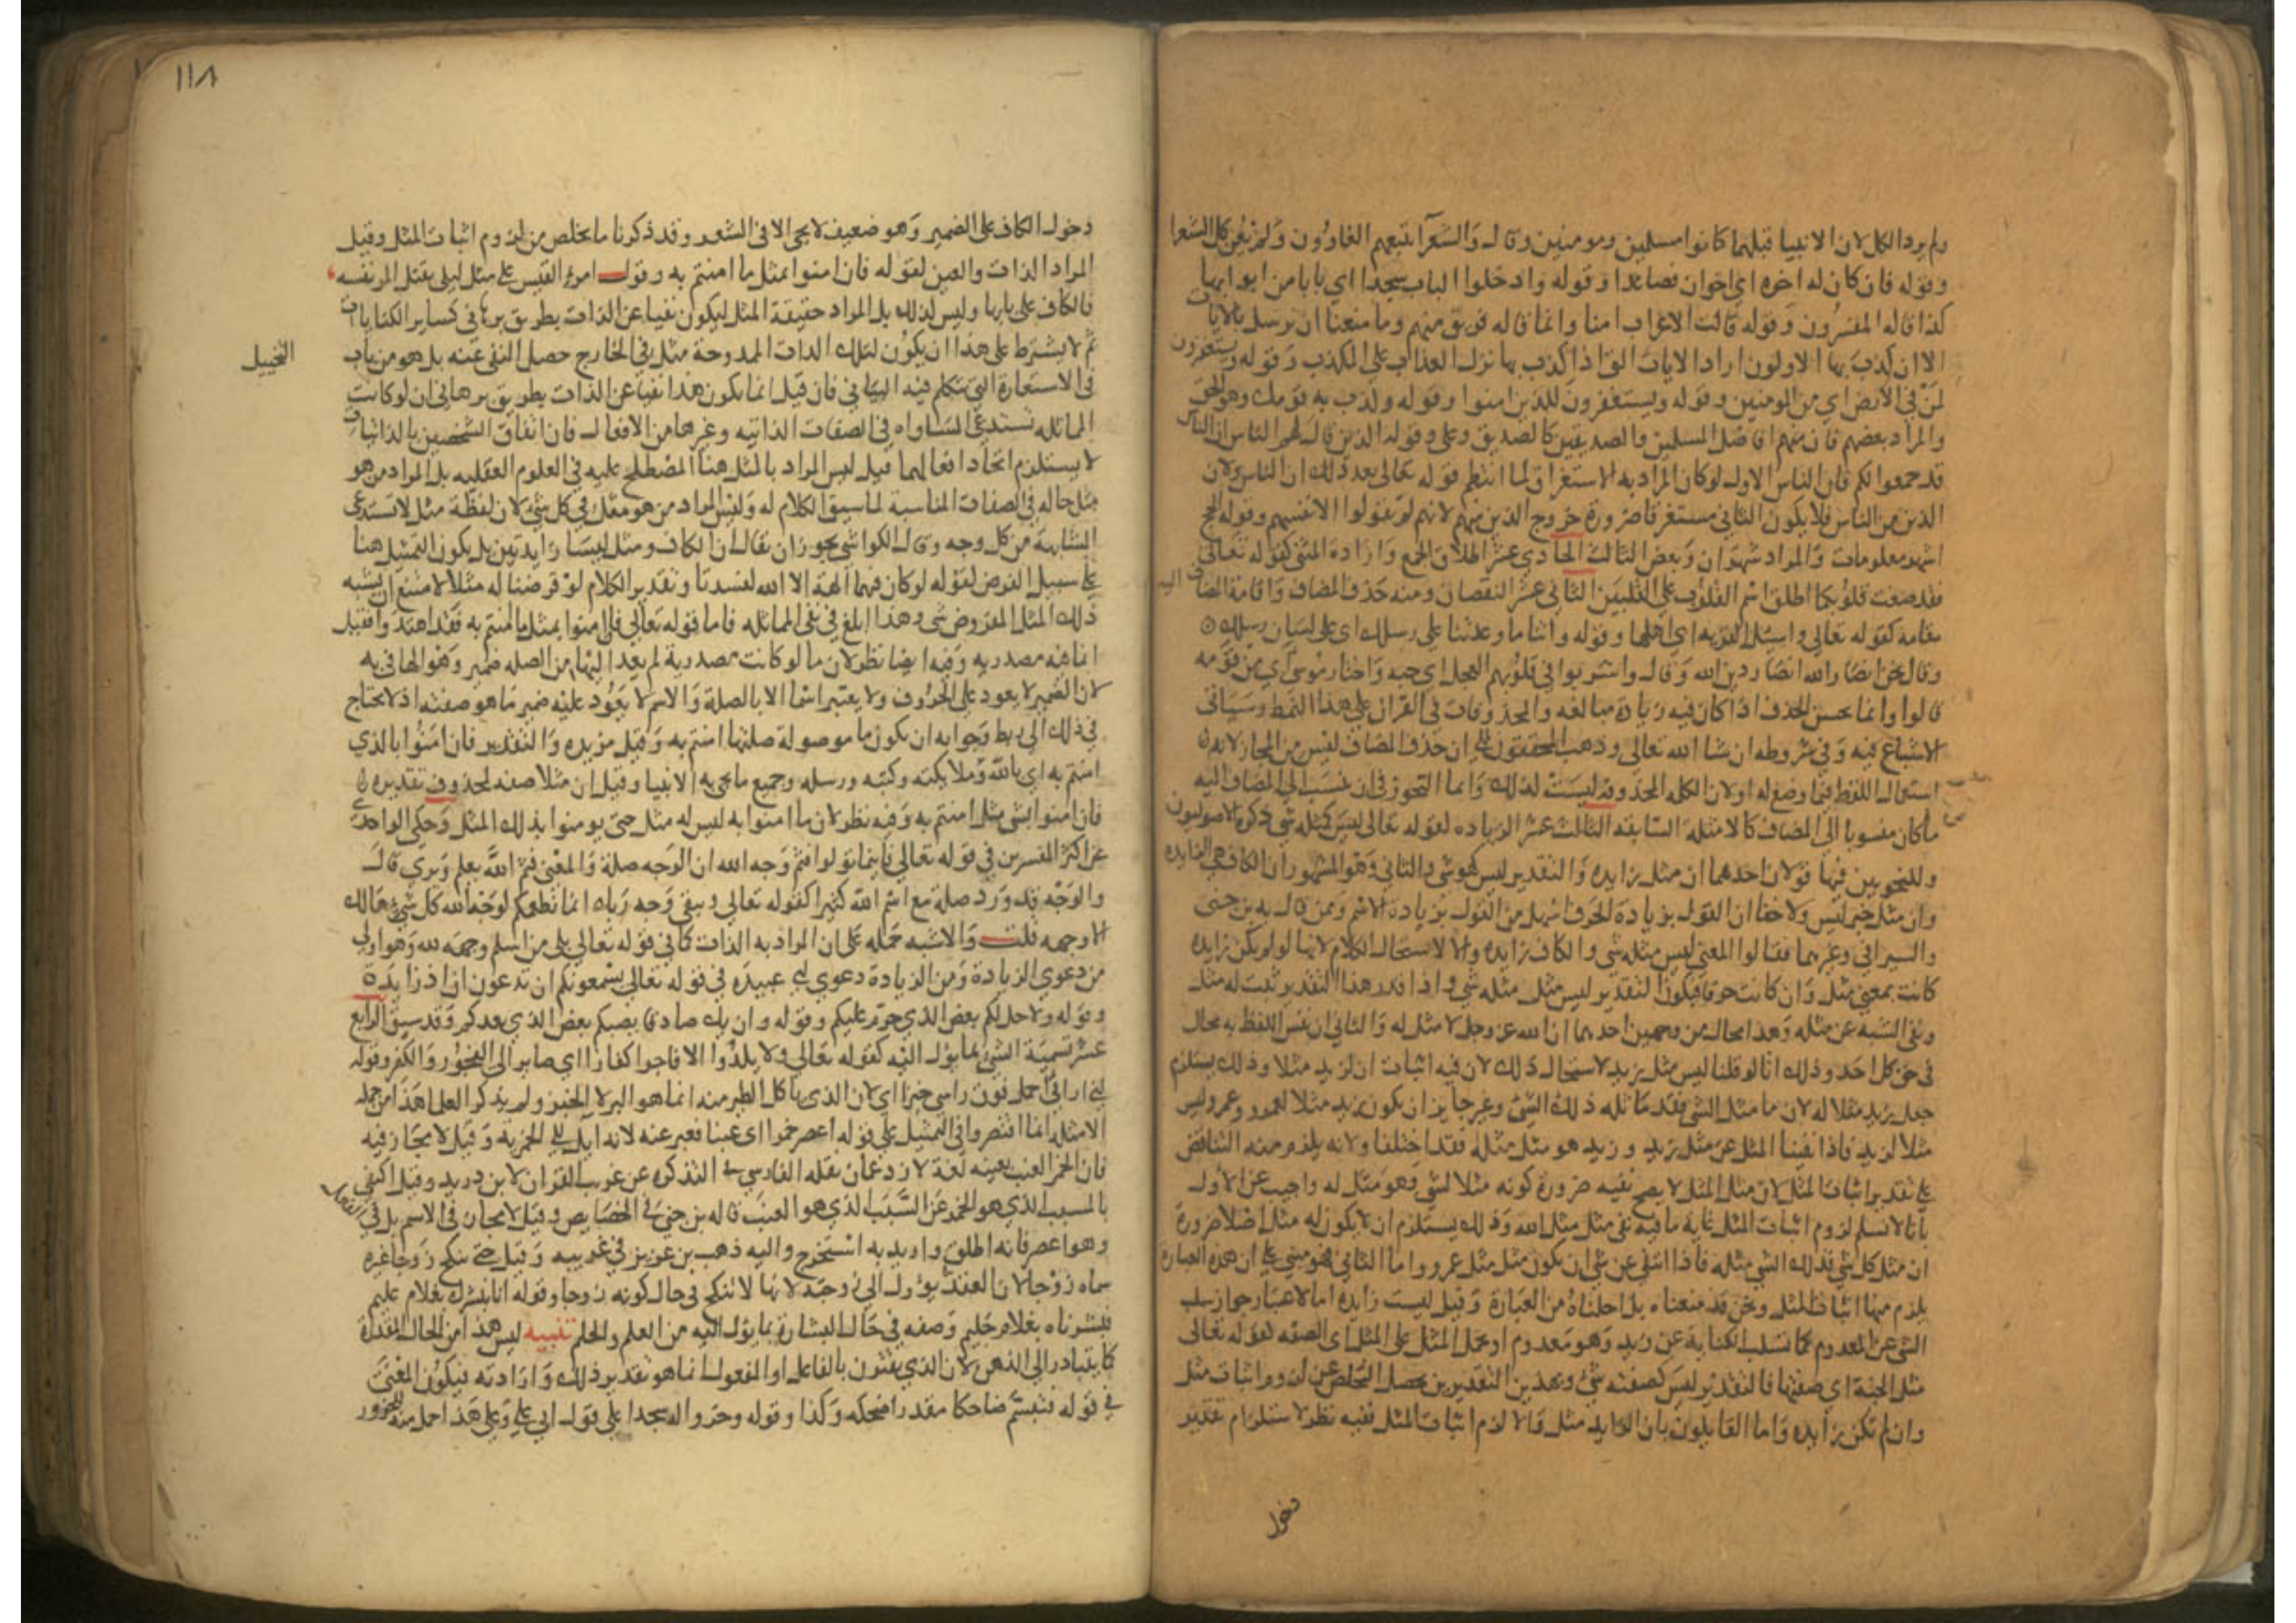 ولم يرد الكل لان الانبيا قبلهما كانوا مسلمين ومومنين وقال والشعرآ يتبعهم الغاوون ولم يعن كل الشعرا
وقوله فان كان له اخوه اي اخوان فصاعدا وقوله وادخلوا الباب سجدا اي بابا من ابوابها
كذا قاله المفسرون وقوله قالت الاعراب امنا وانما قاله فريق منهم وما منعنا ان نرسل بالايات
الا ان كذب بها الاولون اراد الايات التي اذا كذب بها نزل العذاب على المكذب وقوله ويستغفرون
لمن في الارض اي من المومنين وقوله ويستغفرون للذين امنوا وقوله وكذب به قومك وهو الحق
والمراد بعضهم فان منهم افاضل المسلمين والصديقين كالصديق وعلي وقوله الذين قال لهم الناس ان الناس
قد جمعوا لكم فان الناس الاول لو كان المراد به الاستغراق لما انتظم قوله تعالى بعد ذلك ان الناس ولان
الذين من الناس فلا يكون الثاني مستغرقا ضرورة خروج الذين منهم لانهم لم يقولوا لانفسهم وقوله الحج
اشهر معلومات والمراد شهران وبعض الثالث الحادي عشر اطلاق الجمع وارادة المثنى كقوله تعالى
فقد صغت قلوبكما اطلق اسم القلوب على القلبين الثاني عشر النقصان ومنه حذف المضاف واقامة المضاف اليه
مقامه كقوله تعالى واسئل القريه اي اهلها وقوله واتنا ما وعدتنا على رسلك اي على لسان رسلك
وقال نحن انصار الله انصار دين الله وقال واشربوا في قلوبهم العجل اي حبه واختار موسى اي من قومه
قالوا وانما يحسن الحذف اذا كان فيه زيادة مبالغه والمحذوفات في القران على هذا النمط وسياتي
الاشباع فيه وفي شروطه ان شا الله تعالى وذهب المحققون الى ان حذف المضاف ليس من المجاز لانه
استعمال اللفظ فيما وضع له اولان الكلمه المحذوفه ليست لذلك وانما التجوز في ان ينسب الى المضاف اليه
ما كان منسوبا الى المضاف كالامثله السابقه الثالث عشر الزياده لقوله تعالى ليس كمثله شي ذكره الاصوليون
وللنحويين فيها قولان احدهما ان مثل زايده والتقدير ليس كهو شي والثاني وهو المشهور ان الكاف هي الزايده
وان مثل خبر ليس ولا خفا ان القول بزيادة الحرف اسهل من القول بزيادة الاسم وممن قال به بن جنى
والسيرافي وغيرهما فقالوا المعنى ليس مثله شي والكاف زايده والا لاستحال الكلام لانها لو لم تكن زايده
كانت بمعنى مثل وان كانت حرفا فيكون التقدير ليس مثل مثله شي واذا قدر هذا التقدير ثبت له مثل
ونفي الشبه عن مثله وهذا محال من وجهين احدهما ان الله عز وجل لا مثل له والثاني ان نفس اللفظ به محال
في حق كل احد وذلك انا لو قلنا ليس مثل مثل زيد لاستحال ذلك لان فيه اثبات ان لزيد مثلا وذلك يستلزم
جعل زيد مثلا له لان ما مثل الشي فقد ماثله ذلك الشي وغير جايز ان يكون زيد مثلا لعمرو وعمرو ليس
مثلا لزيد فاذا نفينا المثل عن مثل زيد وزيد هو مثل مثله فقد اختلفا ولانه يلزم منه التناقض
على تقدير اثبات المثل لان مثل المثل لا يصح نفيه ضرورة كونه مثلا لشي وهو مثل له واجيب عن الاول
بانا لا نسلم لزوم اثبات المثل غاية ما فيه نفي مثل مثل الله وذلك يستلزم ان لا يكون له مثل اصلا ضرورة
ان مثل كل شي فذلك الشي مثله فاذا انتفى عن شي ان يكون مثل مثل عمرو واما الثاني فهو مبني على ان هذه العبارة
يلزم منها اثبات المثل ونحن قد منعناه بل احلناه من العبارة وقيل ليست زايدة اما لاعتبار جواز سلب
الشي عن المعدوم كما تسلب الكتابة عن زيد وهو معدوم او بحمل المثل على المثل اي الصفه لقوله تعالى
مثل الجنة اي صفتها فالتقدير ليس كصفته شي وبهذين التقديرين يحصل التخلص عن لزوم اثبات مثل
وان لم تكن زايده واما القايلون بان الزايد مثل والا لزم اثبات المثل ففيه نظر لاستلزام تقدير
دخول
١١٨
دخول الكاف على الضمير وهو ضعيف لا يجي الا في الشعر وقد ذكرنا ما يخلص من لزوم اثبات المثل وقيل
المراد الذات والعين لقوله فان امنوا بمثل ما امنتم به وقول امرئ القيس على مثل ليلى يقتل المر نفسه
فالكاف على بابها وليس كذلك بل المراد حقيقة المثل ليكون نفيا عن الذات بطريق برهاني كساير الكنايات
ثم لا يشترط على هذا ان يكون لتلك الذات الممدوحة مثل في الخارج حصل النفي عنه بل هو من باب
التخييل
في الاستعارة التي يتكلم فيه البياني فان قيل انما يكون هذا نفيا عن الذات بطريق برهاني ان لو كانت
المماثله تستدعي المساواه في الصفات الذاتيه وغيرها من الافعال فان اتفاق الشخصين بالذاتيات
لا يستلزم اتحاد افعالهما قيل ليس المراد بالمثل هنا المصطلح عليه في العلوم العقليه بل المراد من هو
مثل حاله في الصفات المناسبة لما سيق الكلام له وليس المراد من هو مثل في كل شي لان لفظة مثل لا تستدعي
المشابهة من كل وجه وقال الكواشي يجوز ان يقال ان الكاف ومثل ليسا زايدتين بل يكون التمثيل هنا
على سبيل الفرض لقوله لو كان فيهما الهة الا الله لفسدتا وتقدير الكلام لو فرضنا له مثلا لامتنع ان يشبه
ذلك المثل المفروض شي وهذا ابلغ في نفي المماثله فاما قوله تعالى فان امنوا بمثل ما امنتم به فقد اهتدوا فقيل
ان ما فيه مصدريه وفيه ايضا نظر لان ما لو كانت مصدرية لم يعد اليها من الصله ضمير وهو الها في به
لان الضمير لا يعود على الحروف ولا يعتبر اسما الا بالصلة والاسم لا يعود عليه ضمير ما هو صفته اذ لا يحتاج
في ذلك الى ربط وجوابه ان يكون ما موصولة صلتها امنتم به وقيل مزيده والتقدير فان امنوا بالذي
امنتم به اي بالله وملايكته وكتبه ورسله وجميع ما يجي به الانبيا وقيل ان مثلا صفه لمحذوف تقديره
فان امنوا بشي مثل ما امنتم به وفيه نظر لان ما امنوا به ليس له مثل حتى يومنوا بذلك المثل وحكى الواحدي
عن اكثر المفسرين في قوله تعالى فاينما تولوا فثم وجه الله ان الوجه صلة والمعنى فثم الله يعلم ويرى قال
والوجه قد ورد صلة مع اسم الله كثيرا كقوله تعالى ويبقى وجه ربك انما نطعمكم لوجه الله كل شي هالك
الا وجهه قلت والاشبه حمله على ان المراد به الذات كما في قوله تعالى بلى من اسلم وجهه لله وهو اولى
من دعوى الزيادة ومن الزيادة دعوى ابي عبيده في قوله تعالى يسمعونكم اذ تدعون ان اذ زايدة
وقوله ولاحل لكم بعض الذي حرم عليكم وقوله وان يك صادقا يصبكم بعض الذي يعدكم وقد سبق الرابع
عشر تسمية الشي بما يؤل اليه كقوله تعالى ولا يلدوا الا فاجرا كفارا اي صاير الى الفجور والكفر وقوله
اني اراني احمل فوق راسي خبزا اي لان الذي ياكل الطير منه انما هو البر لا الخبز ولم يذكر العلما هذا من جمله
الامثله انما اقتصروا في التمثيل على قوله اعصر خمرا اي عنبا فعبر عنه لانه ايل الى الخمريه وقيل لا مجاز فيه
فان الخمر العنب بعينه لغة لازد عمان نقله الفارسي في التذكره عن غريب القران لابن دريد وقيل اكتفي
بالمسبب الذي هو الخمر عن السبب الذي هو العنب قاله بن جني في الخصايص وقيل لا مجاز في الاسم بل في الفعل
وهو اعصر فانه اطلق واريد به استخرج واليه ذهب بن عزيز في غريبه وقيل حتى تنكح زوجا غيره
سماه زوجا لان العقد يؤول الى زوجيه لانها لا تنكح في حال كونه زوجا وقوله انا نبشرك بغلام عليم
فبشرناه بغلام حليم وصفه في حال البشارة بما يؤل اليه من العلم والحلم تنبيه ليس هذا من الحال المقدرة
كما يتبادر الى الذهن لان الذي يقترن بالفاعل او المفعول انما هو تقدير ذلك وارادته فيكون المعنى
في قوله فتبسم ضاحكا مقدرا ضحكه وكذا وقوله وخروا له سجدا على قول ابي علي وعلى هذا حمل منه للخرور